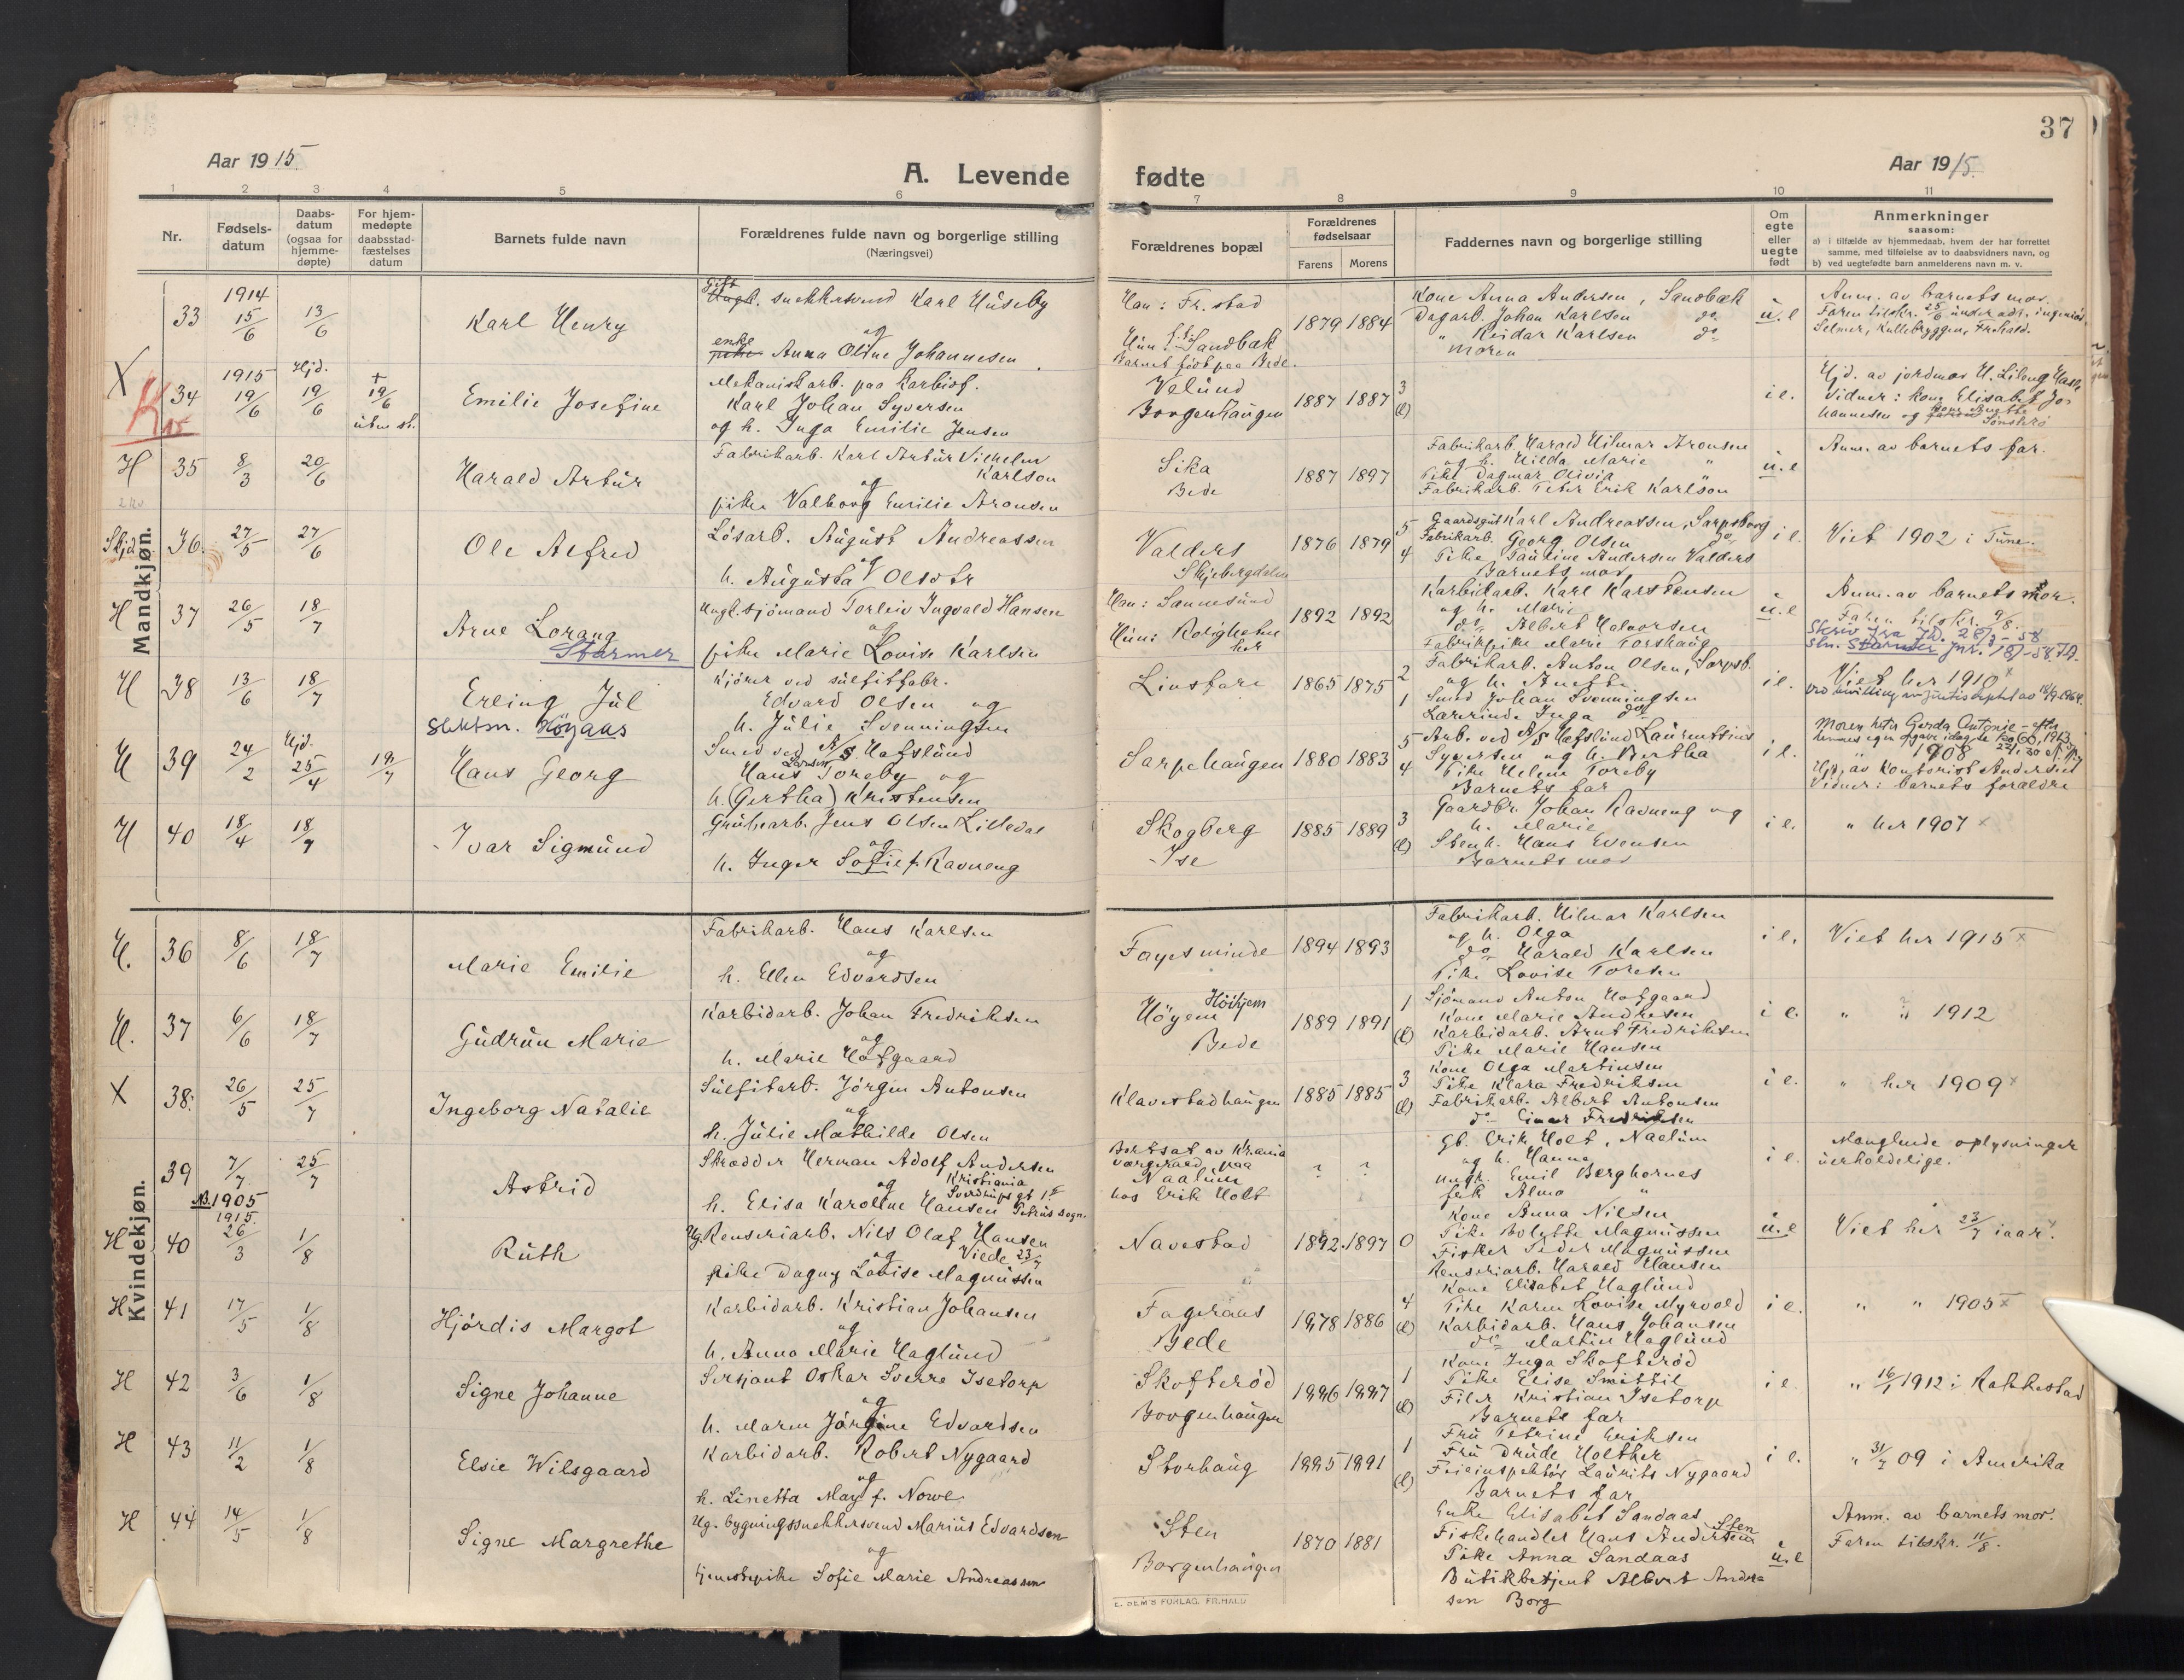 37
Aar 1915.
A. Levende
fødte
Aar 1915.
1 2 3 4 5 6 7 8 9 10 11
Nr.
Fødsels-
datum
Daabs-
datum
(ogsaa for
hjemme-
døpte)
For hjem-
medøpte
daabsstad-
fæstelses
datum
Barnets fulde navn
Forældrenes fulde navn og borgerlige stilling
(Næringsvei)
Forældrenes bopæl
Forældrenes
fødselsaar
Farens Morens
Faddernes navn og borgerlige stilling
Om
egte
eller
uegte
født
Anmerkninger
saasom:
a) i tilfælde av hjemmedaab, hvem der har forrettet
samme, med tilføielse av to daabsvidners navn, og
b) ved uegtefødte barn anmelderens navn m. v.
Mandkjøn.
33
1914
15/6
13/6
Karl Henry
Gift
Ungk. snekkersvend Karl Huseby
og
enke
pike Anna Oline Johannesen
Han: Fr.stad
Hun: Sandbæk
Barnet født paa Bede.
1879 1884
Kone Anna Andersen, Sandbæk
Dagarb. Johan Karlsen do
" Reidar Karlsen do
Moren
u.e
Anm. av barnets mor.
Faren tilskr. 25/6 under adr. ingeniør
Selmer, Kullebryggen, Fr.hald.
X
34
1915
19/6
Hjd.
19/6
+
19/6
uten st.
Emilie Josefine
Mekaniskarb. paa Karbidf.
Karl Johan Syversen
og h. Inga Emilie Jensen
Velund
Borgenhaugen
1887 1887
3
(l)
i e.
Hjd. av jordmor H. Liberg
Vidner: kone Elisabet Jo-
hannesen og
H 35
8/3
20/6
Harald Artur
Fabrikarb. Karl Artur Vilhelm
Karlson
og
pike Valborg Emilie Aronsen
Sika
Bede
1887 1897
Fabrikarb. Harald Hilmar Aronsen
og h. Hilda Marie "
Pike Dagmar Olivia
Fabrikarb. Peter Erik Karlson
u.e
Anm. av barnets far.
Skjd. 36.
27/5
27/6
Ole Alfred
Løsarb. August Andreassen
og
h. Augusta Olsdtr
Valders
Skjebergdalen
1876 1879
5
4
Gaardsgut Karl Andreassen, Sarpsborg
Fabrikarb. Georg Olsen do
Pike Pauline Andersen Valders
Barnets mor
i e.
Viet 1902 i Tune.
H 37
26/5
18/7
Arne Lorang
Starmer
Ungk. sjømand Torleiv Ingvald Hansen
og
pike Marie Lovise Karlsen
Han: Sannesund
Hun: Roligheten
her
1892 1892
Karbidarb. Karl Karstensen
og h. Marie
do Albert Halvorsen
Fabrikpike Marie Torshaug
u.e
Anm. av barnets mor.
Faren tilskr. 9/8.
H 38
13/6
18/7
Erling Jul
Slektsn. Høyaas
Kjører ved sulfitfabr.
Edvard Olsen og
h. Julie Svenningsen
Linstare
1865 1875
2
1
Fabrikarb. Anton Olsen, Sarpsb.
og h. Anette
Smed Johan Svenningsen
Lærerinde Inga do
i e.
Viet her 1910
H 39
24/2
Hjd.
25/4
19/7
Hans Georg
Smed ved A/S Hafslund
Hans Toreby og
h. (Gertha) Kristensen
Sarpehaugen
1880 1883
5
4
Arb. ved A/S Hafslund Laurentius
Syversen og h. Bertha
Pike Helene Toreby
Barnets far
i e.
Moren heter Gerda Antonie - efter
1908
Hjd. av Kontorist Andersen
Vidner: barnets forældre
H 40
18/4
18/7
Ivar Sigmund
Grubearb. Jens Olsen Lilledal
og
h. Inger Sofie f. Ravneng
Skogberg
Ise
1885 1889
3
(l)
Gaardbr. Johan Ravneng og
h. Marie
Stenh. Hans Evensen
Barnets mor
i e.
" her 1907 x
Kvindekjøn.
H. 36
8/6
18/7
Marie Emilie
Fabrikarb. Hans Karlsen
og
h. Ellen Edvardsen
Fagesminde
1894 1893
Fabrikarb. Hilmar Karlsen
og h. Olga
do Harald Karlsen
Pike Lovise Toresen
i e.
Viet her 1915 x
H. 37
6/6
18/7
Gudrun Marie
Karbidarb. Johan Fredriksen
og
h. Marie Hofgaard
Høihjem
Høyem
Bede
1889 1891
1
(l)
Sjømand Anton Hofgaard
Kone Marie Andresen
Karbidarb. Arnt Fredriksen
Pike Marie Hansen
i e.
" " 1912
X 38.
26/5
25/7
Ingeborg Natalie
Sulfitarb. Jørgen Antonsen
og
h. Julie Mathilde Olsen
Klavestadhaugen
1885 1885
3
(l)
Kone Olga Martinsen
Pike Klara Fredriksen
Fabrikarb. Albert Antonsen
do Einar Fredriksen
i e.
" her 1909 x
39
7/7
NB. 1905
25/7
Astrid
Skrædder Herman Adolf Andersen
og Kristiania
h. Elisa Karoline Hansen Petrus sogn.
Bortsat av Kr.ania
værgeraad paa
Naalum
hos Erik Holt
? ?
Gb. Erik Holt, Naalum
og h. Hanna
Ungk. Emil Berghornes
frk Alma "
i e.
Manglende oplysninger
uerholdelige.
H 40
1915.
26/3
1/8
Ruth
Ug. Renseriarb. Nils Olaf Hansen
og Viede 23/7
pike Dagny Lovise Magnussen
Navestad
1892. 1897
0
Kone Anna Nilsen
Pike Bolette Magnussen
Fisker Peder Magnussen
Renseriarb. Harald Hansen
u.e
Viet her 23/7 iaar.
H 41
17/5
1/8
Hjørdis Margot
Karbidarb. Kristian Johansen
og
h. Anna Marie Haglund
Fageraas
Bede
1878 1886
4
(l)
Kone Elisabet Haglund
Pike Karen Lovise Myrvold
Karbidarb. Hans Johansen
do Martin Haglund
i e.
" " 1905 x
H 42
3/6
1/8
Signe Johanne
Sersjant Oskar Sverre Isetorp
og
h. Maren Jørgine Edvardsen
Skofterød
Borgenhaugen
1
(l)
Kone Inga Skofterød
Pike Elise Smittil
Filer Kristian Isetorp
Barnets far
i e.
" 16/1 1912 i Rakkestad
H 43
11/2
1/8
Elsie Wilsgaard
Karbidarb. Robert Nygaard
og
h. Linetta May f. Nowe
Storhaug
1
(l)
Fru Petrine Eriksen
Fru Drude Holther
Feieinspektør Laurits Nygaard
Barnets far
i e.
" 31/7 09 i Amerika
H 44
14/5
1/8
Signe Margrethe
Ug. bygningssnekkersvend Marius Edvardsen
og
tjenestepike Sofie Marie Andreassen
Sten
Borgenhaugen
1870 1881
Enke Elisabet Sandaas Sten
Fiskehandler Hans Andersen
Pike Anna Sandaas
Butikbetjent Albert Ander-
sen Borg
u.e
Anm. av barnets mor.
Faren tilskr. 11/8.
E. SEM'S FORLAG, FR.HALD